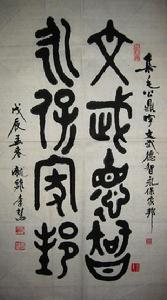 集毛公鼎字文武德智永保家邦
文武悳智
永保家邦
戊辰孟春